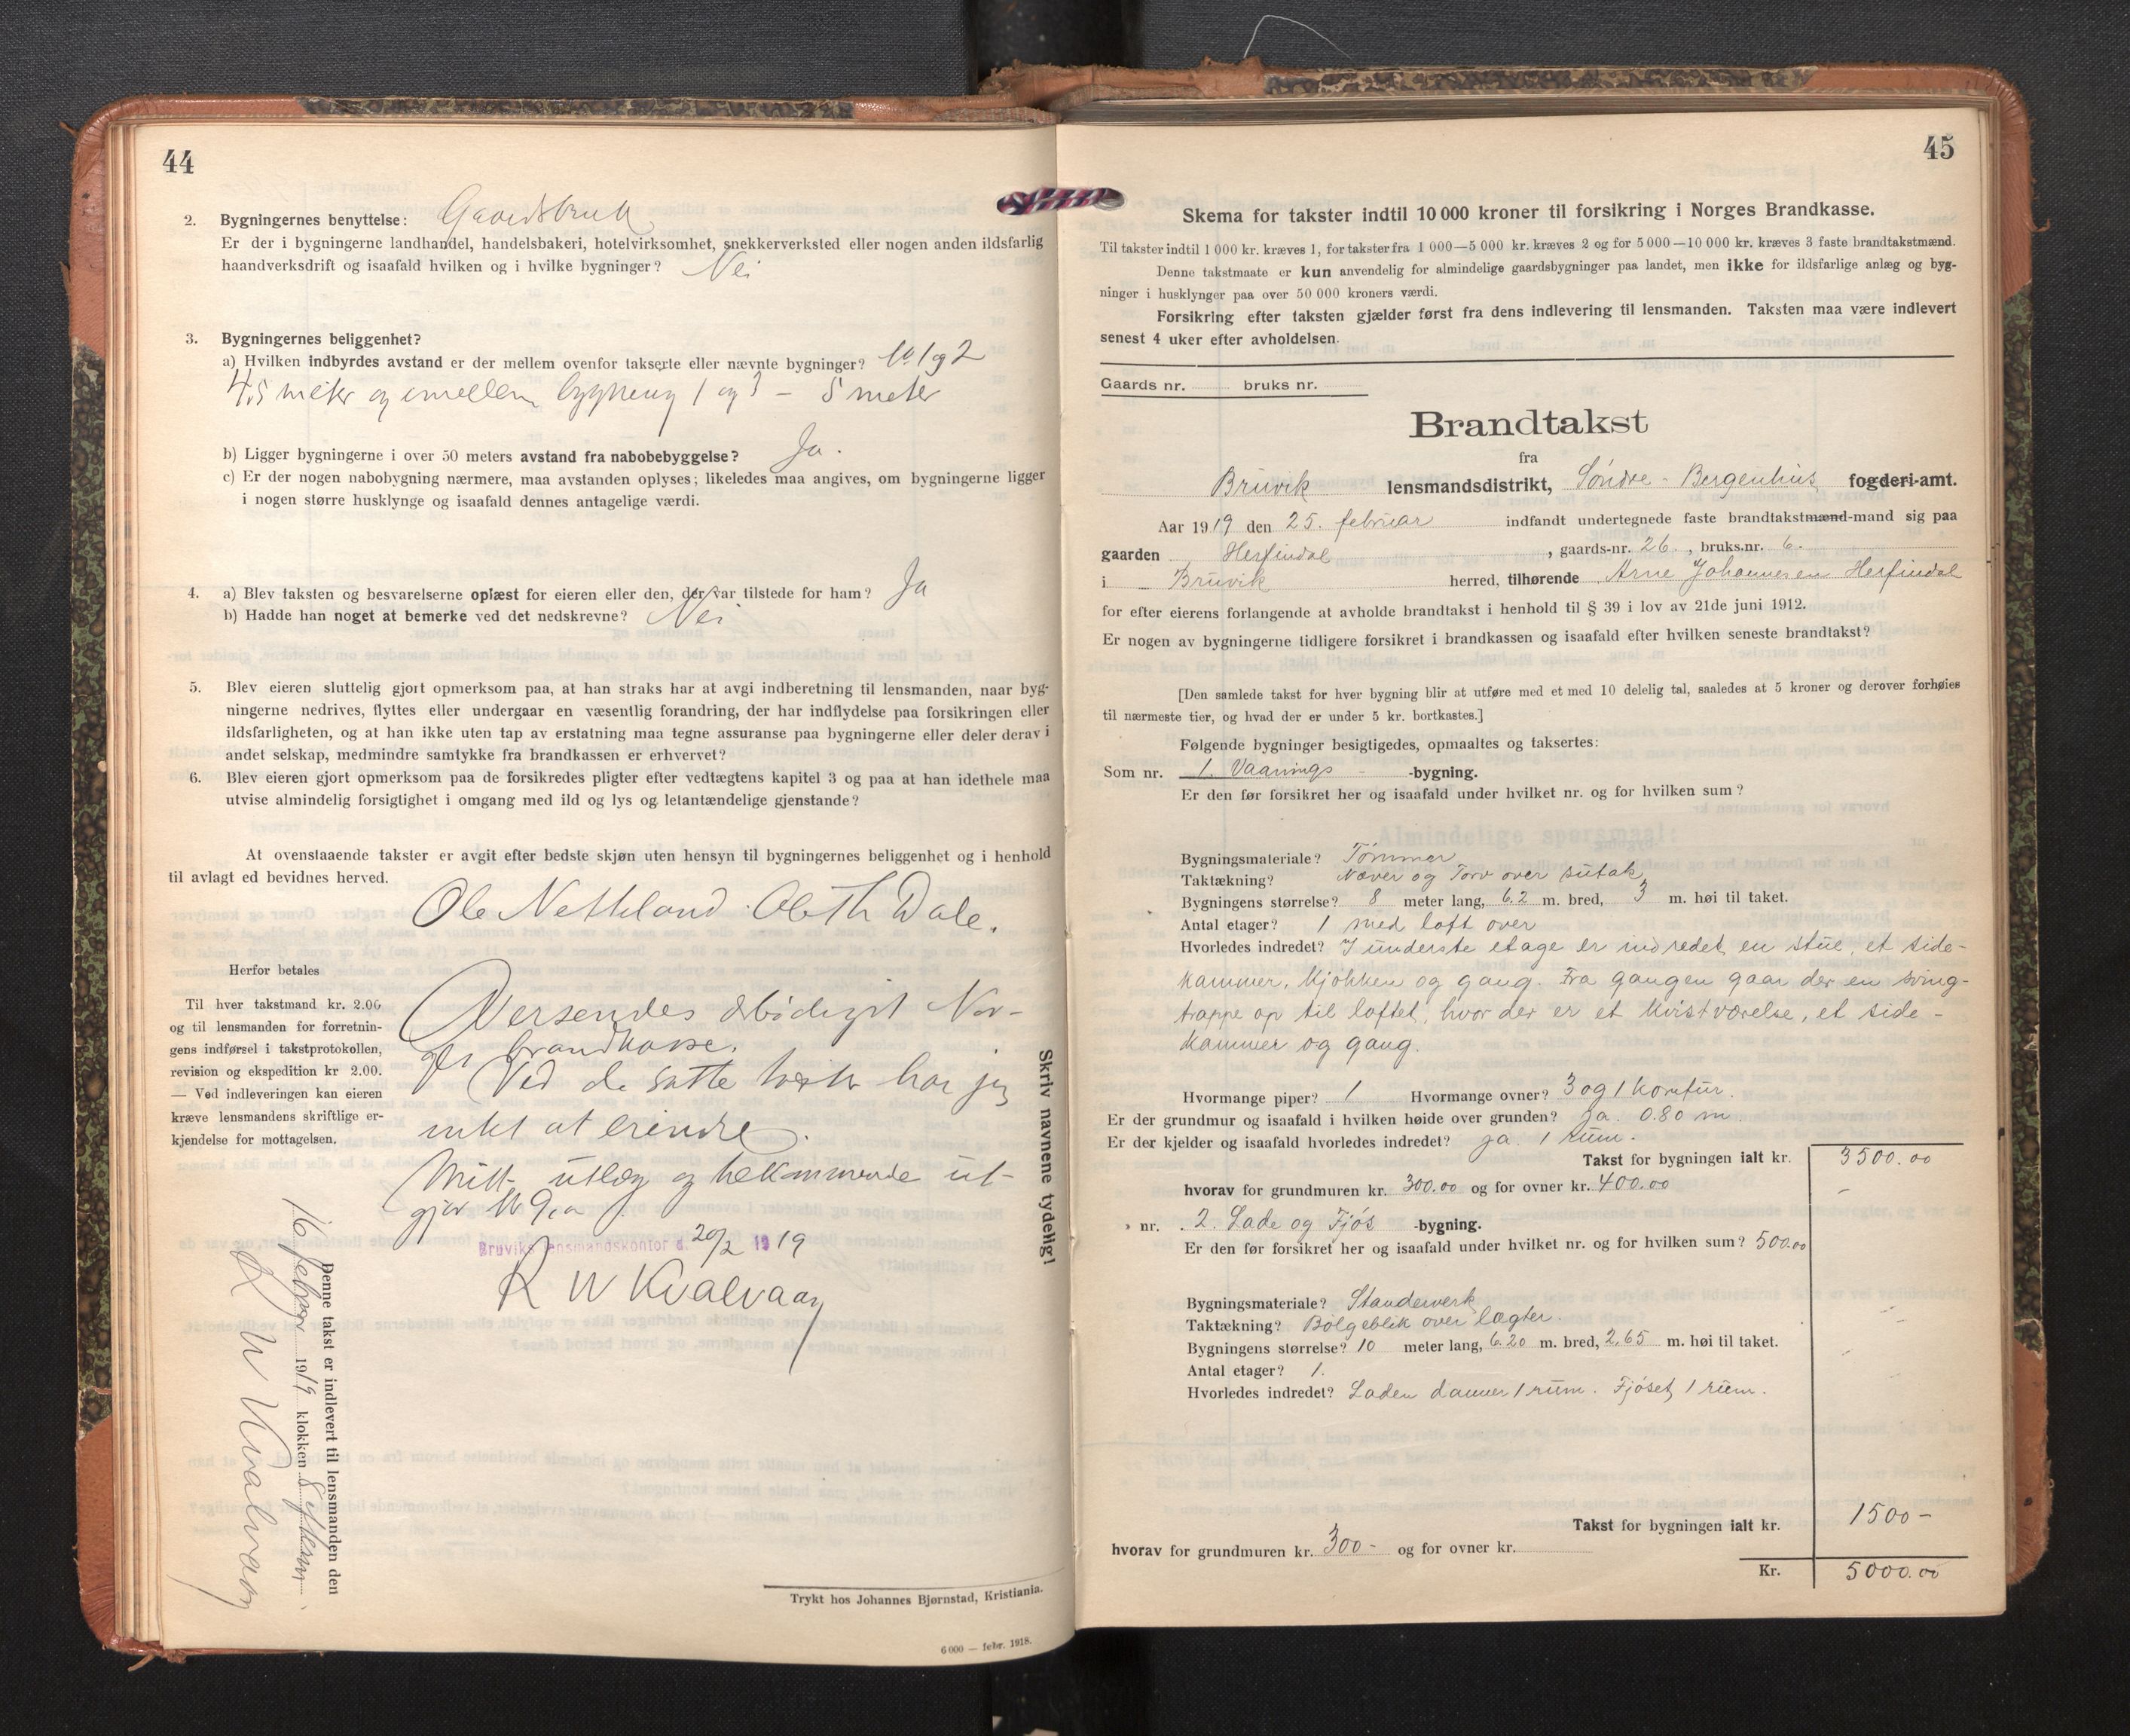 44
2. Bygningernes benyttelse: Gaardsbruk
Er der i bygningerne landhandel, handelsbakeri, hotelvirksomhet, snekkerverksted eller nogen anden ildsfarlig
haandverksdrift og isaafald hvilken og i hvilke bygninger? Nei
3. Bygningernes beliggenhet?
a) Hvilken indbyrdes avstand er der mellem ovenfor takserte eller nævnte bygninger? No 1 og 2
4.5 meter og imellem bygning 1 og 3 – 5 meter
b) Ligger bygningerne i over 50 meters avstand fra nabobebyggelse? Ja.
c) Er der nogen nabobygning nærmere, maa avstanden oplyses; likeledes maa angives, om bygningerne ligger
i nogen større husklynge og isaafald dennes antagelige værdi.
4. a) Blev taksten og besvarelserne oplæst for eieren eller den, der var tilstede for ham? Ja
b) Hadde han noget at bemerke ved det nedskrevne? Nei
5. Blev eieren sluttelig gjort opmerksom paa, at han straks har at avgi indberetning til lensmanden, naar byg-
ningerne nedrives, flyttes eller undergaar en væsentlig forandring, der har indflydelse paa forsikringen eller
ildsfarligheten, og at han ikke uten tap av erstatning maa tegne assuranse paa bygningerne eller deler derav i
andet selskap, medmindre samtykke fra brandkassen er erhvervet?
6. Blev eieren gjort opmerksom paa de forsikredes pligter efter vedtægtens kapitel 3 og paa at han idethele maa
utvise almindelig forsigtighet i omgang med ild og lys og letantændelige gjenstande?
At ovenstaaende takster er avgit efter bedste skjøn uten hensyn til bygningernes beliggenhet og i henhold
til avlagt ed bevidnes herved.
Ole Netteland. Ole Th Dale.
Herfor betales
Til hver takstmand kr. 2.00
og til lensmanden for forretnin-
gens indførsel i takstprotokollen,
revision og ekspedition kr 2.00.
— Ved indleveringen kan eieren
kræve lensmandens skriftlige er-
kjendelse for mottagelsen.
Versendes ærbødigst Nor-
ges brandkasse.
Ved de satte takster har jeg
intet at erindre.
Mitt utlæg og tilkommende ut-
gjør kr 9,00
Bruviks lensmandskontor d. 20/2 1919
R W Kvalvaag
Skriv navnene tydelig!
Denne takst er indlevert til lensmanden den
16 februar 1919 klokken 8 efterm.
R W Kvalvaag
Trykt hos Johannes Bjørnstad, Kristiania.
6 000 — febr. 1918.
45
Skema for takster indtil 10 000 kroner til forsikring i Norges Brandkasse.
Til takster indtil 1 000 kr. kræves 1, for takster fra 1 000—5 000 kr. kræves 2 og for 5 000—10 000 kr. kræves 3 faste brandtakstmænd.
Denne takstmaate er kun anvendelig for almindelige gaardsbygninger paa landet, men ikke for ildsfarlige anlæg og byg-
ninger i husklynger paa over 50 000 kroners værdi.
Forsikring efter taksten gjælder først fra dens indlevering til lensmanden. Taksten maa være indlevert
senest 4 uker efter avholdelsen.
Gaards nr. bruks nr.
Brandtakst
fra
Bruvik lensmandsdistrikt, Søndre - Bergenhus fogderi-amt.
Aar 1919 den 25. februar indfandt undertegnede faste brandtakstmænd-mand sig paa
gaarden Herfindal, gaards-nr. 26., bruks.nr. 6.
i Bruvik herred, tilhørende Arne Johannesen Herfindal
for efter eierens forlangende at avholde brandtakst i henhold til § 39 i lov av 21de juni 1912.
Er nogen av bygningerne tidligere forsikret i brandkassen og isaafald efter hvilken seneste brandtakst?
[Den samlede takst for hver bygning blir at utføre med et med 10 delelig tal, saaledes at 5 kroner og derover forhøies
til nærmeste tier, og hvad der er under 5 kr. bortkastes.]
Følgende bygninger besigtigedes, opmaaltes og taksertes:
Som nr. 1. Vaanings -bygning.
Er den før forsikret her og isaafald under hvilket nr. og for hvilken sum?
Bygningsmateriale? Tømmer
Taktækning? Næver og Torv over sutak
Bygningens størrelse? 8 meter lang, 6.2 m. bred, 3 m. høi til taket.
Antal etager? 1 med loft over
Hvorledes indredet? I underste etage er indredet en stue, et side-
kammer, kjøkken og gang. Fra gangen gaar der en sving-
trappe op til loftet, hvor der er et kvistværelse, et side-
kammer og gang.
Hvormange piper? 1 Hvormange ovner? 3 og 1 komfur.
Er der grundmur og isaafald i hvilken høide over grunden? Ja. 0.80 m.
Er der kjelder og isaafald hvorledes indredet? Ja. 1 rum.
Takst for bygningen ialt kr. 3500.00
hvorav for grundmuren kr. 300.00 og for ovner kr. 400.00
» nr. 2. Lade og Fjøs -bygning.
Er den før forsikret her og isaafald under hvilket nr. og for hvilken sum? 500.00
Bygningsmateriale? Standerverk
Taktækning? Bølgeblik over lægter.
Bygningens størrelse? 10 meter lang, 6.20 m. bred, 2.65 m. høi til taket.
Antal etager? 1.
Hvorledes indredet? Laden danner 1 rum. Fjøset 1 rum.
Takst for bygningen ialt kr. 1500 –
hvorav for grundmuren kr. 300 - og for ovner kr.
Kr. 5000.00